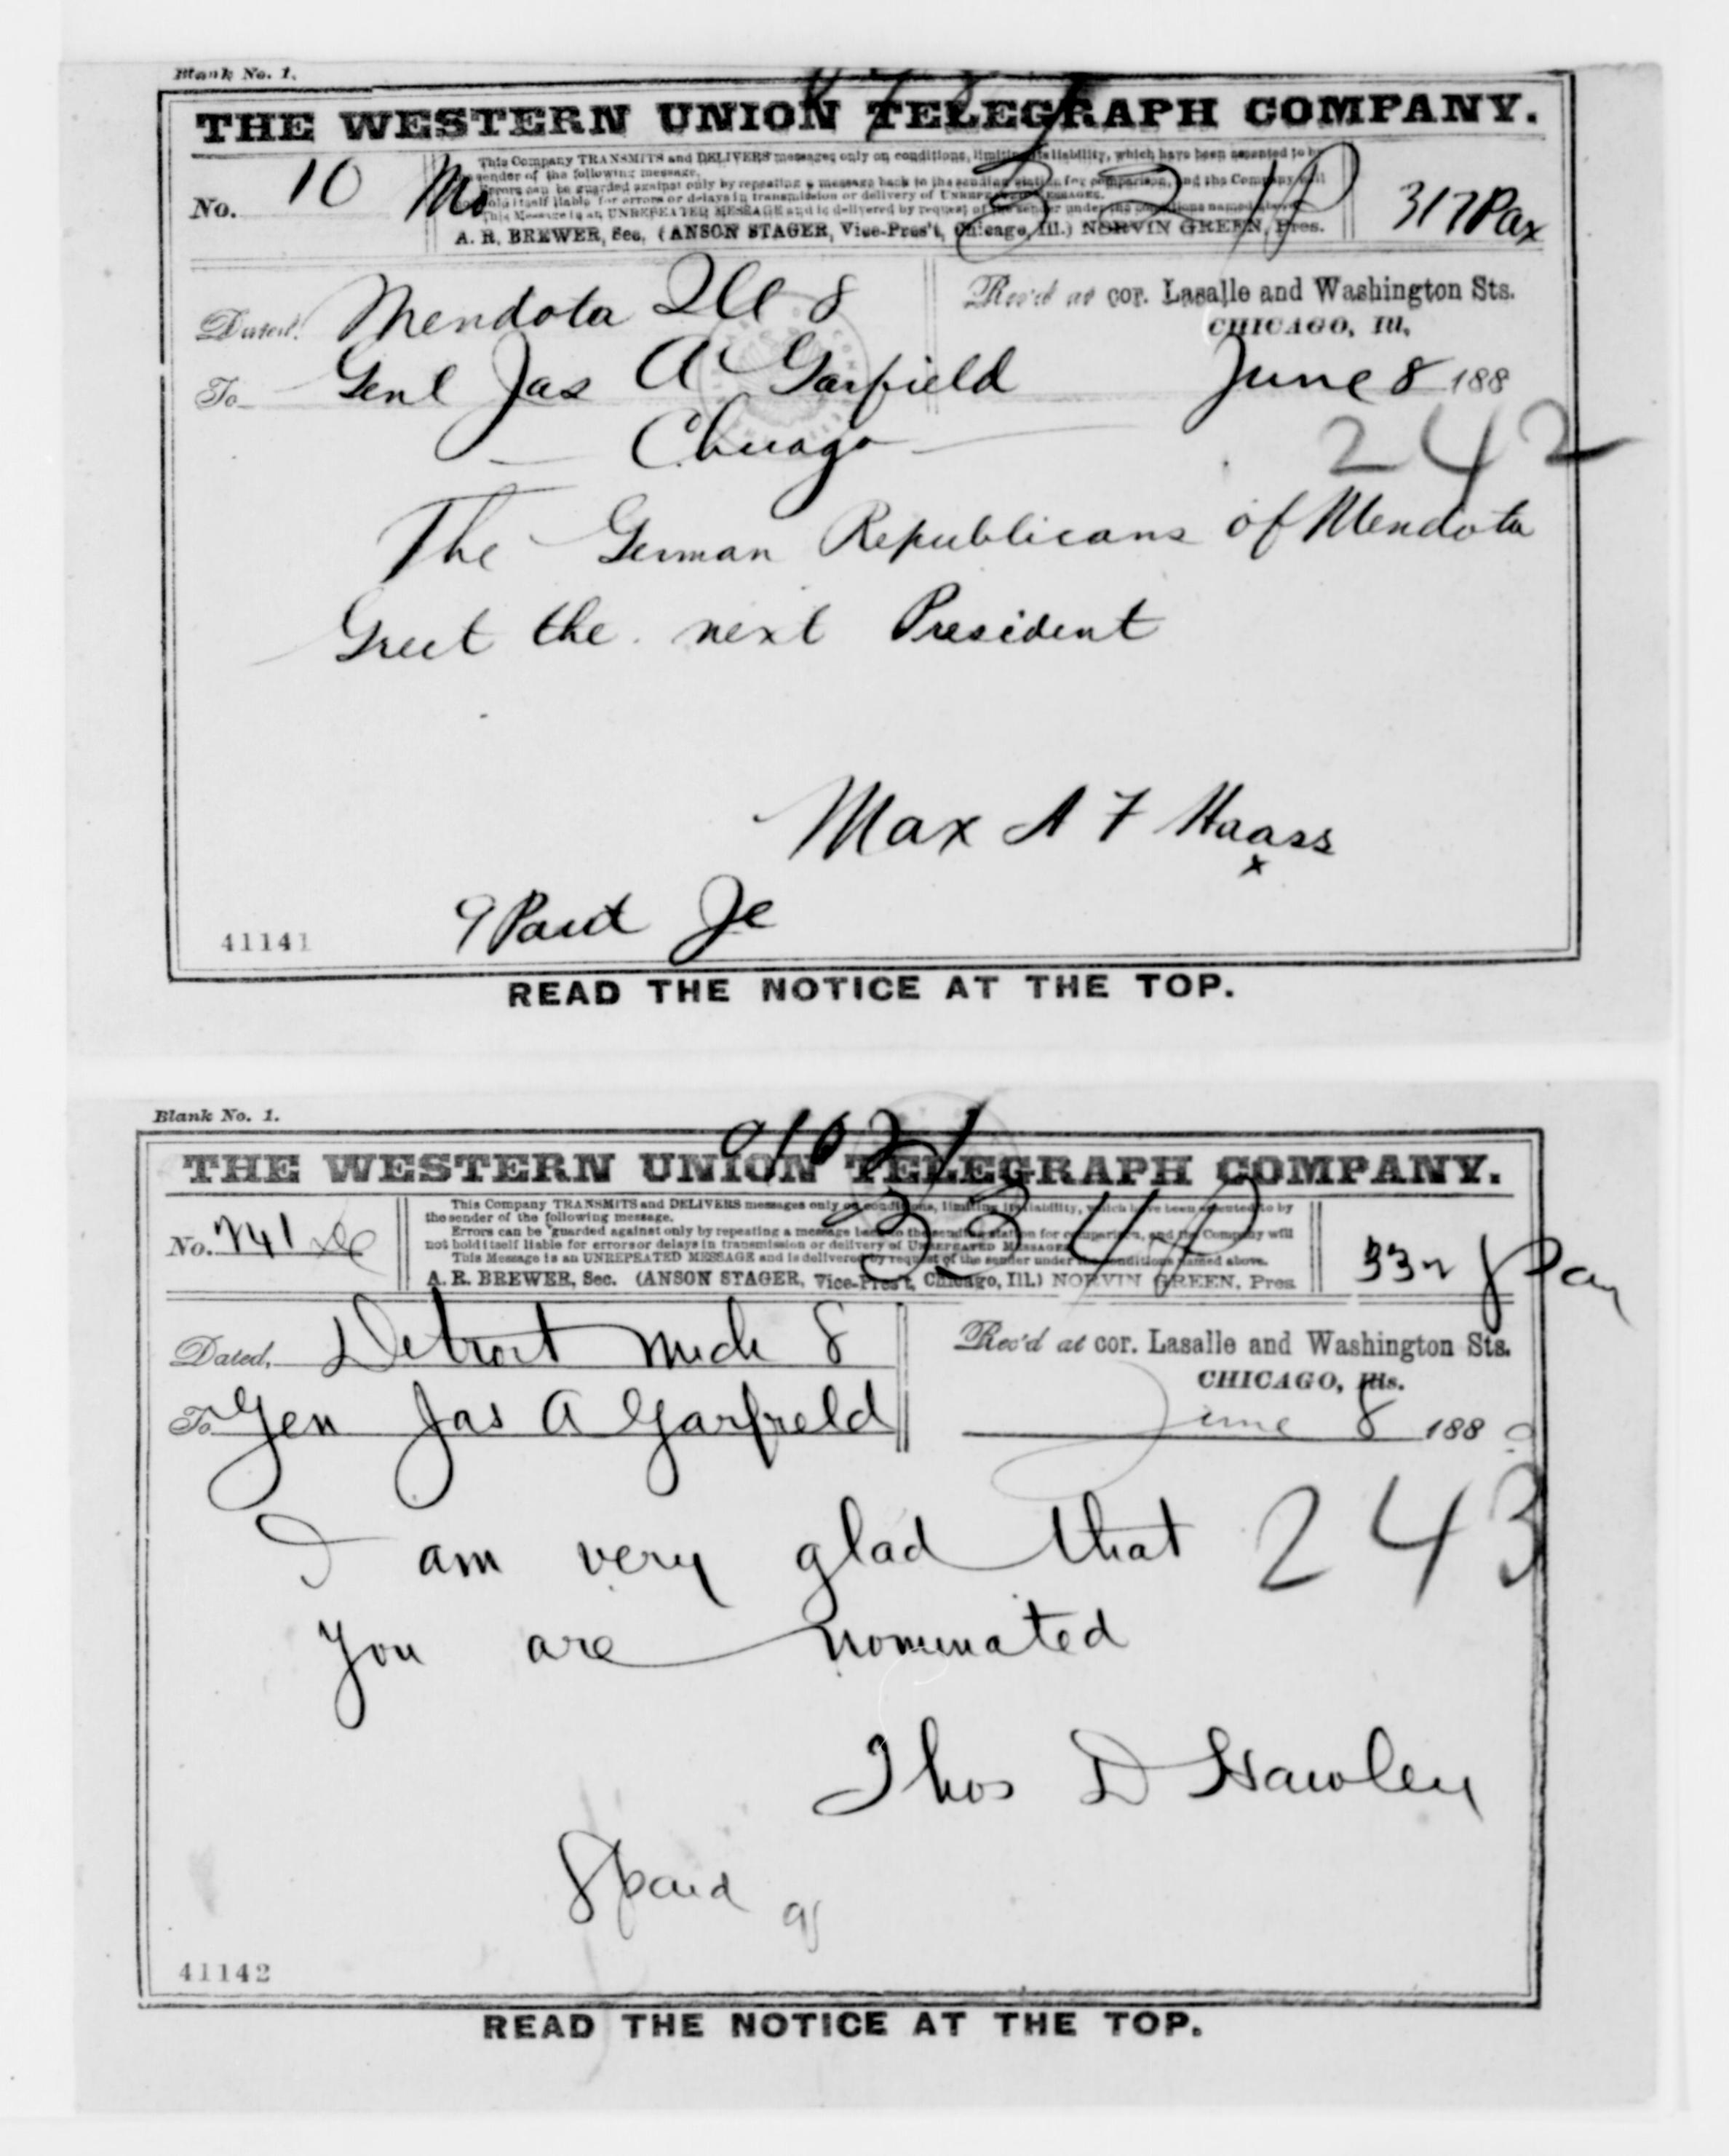 Blank No. 1.
THE WESTERN UNION TELEGRAPH COMPANY.
This Company TRANSMITS and DELIVERS messages only on conditions, limiting its liability, which have been assented to by
sender of the following message.
Errors can be guarded against only by repeating a message back to the sending station for comparison, and the Company will
hold itself liable for errors or delays in transmission or delivery of UNREPEATED MESSAGES.
This Message is an UNREPEATED MESSAGE and is delivered by request of the sender under the conditions named above.
A. R. BREWER, Sec. (ANSON STAGER, Vice-Pres't, Chicago, Ill.) NORVIN GREEN, Pres.
No. 10 Mo
317 Pax
Dated, Mendota Ill 8
Rec'd at cor. Lasalle and Washington Sts.
CHICAGO, Ill,
To Genl Jas A Garfield
June 8 188
Chicago
242
The German Republicans of Mendota
Greet the next President
Max A F Haass
x
9 Paid Je
41141
READ THE NOTICE AT THE TOP.
Blank No. 1.
THE WESTERN UNION TELEGRAPH COMPANY.
This Company TRANSMITS and DELIVERS messages only on conditions, limiting its liability, which have been assented to by
the sender of the following message.
Errors can be guarded against only by repeating a message back to the sending station for comparison, and the Company will
not hold itself liable for errors or delays in transmission or delivery of UNREPEATED MESSAGES
This Message is an UNREPEATED MESSAGE and is delivered by request of the sender under the conditions named above.
A. R. BREWER, Sec. (ANSON STAGER, Vice-Pres't, Chicago, Ill.) NORVIN GREEN, Pres.
No. 741
334 P
332
Dated, Detroit Mich 8
Rec'd at cor. Lasalle and Washington Sts.
CHICAGO, Ills.
To Gen Jas A Garfield
June 8 1880
I am very glad that
243
you are nominated
Thos D Hawley
8 paid
41142
READ THE NOTICE AT THE TOP.